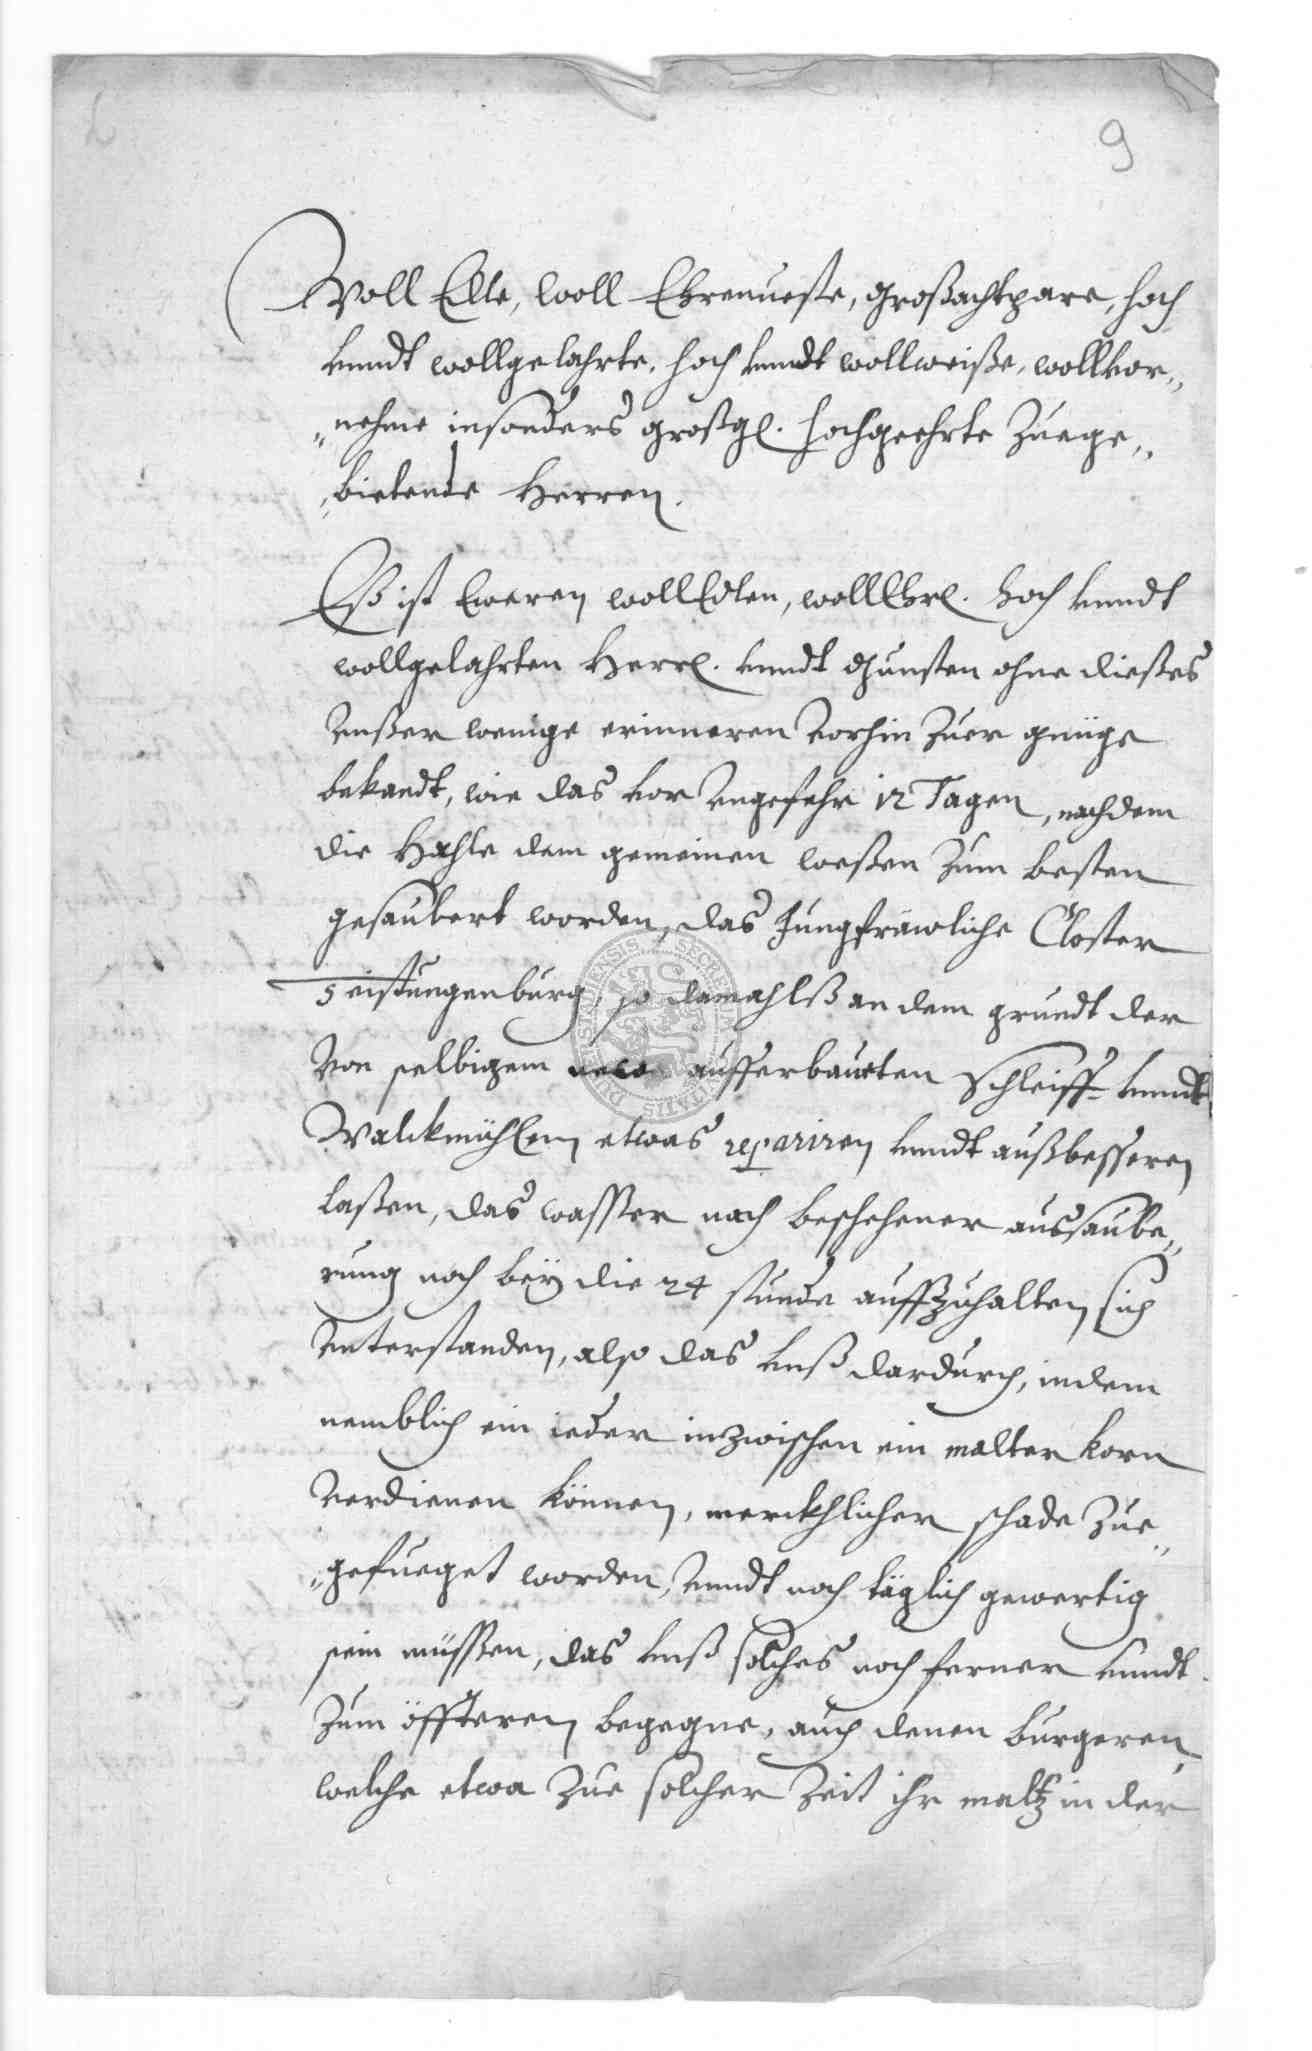 9
Woll Edle, woll Ehrenueste, Großachtpare, hoch
vnndt wollgelahrte, hoch vnndt wollweiße, wollvor„
„nehme insonders großgl. hochgeehrte Zuege„
„bietende Herren.
Eß ist Eweren wollEdlen, wollEhrl. hoch vnndt
wollgelahrten Herrl. vnndt Gunsten ohne dießes
vnßer wenige erinneren vorhin zuer gnüge
bekandt, wie das vor vngefehr 12 Tagen, nachdem
die Hahle dem gemeinen weßen zum besten
gesaubert worden, das Jungfräwliche Closter
Teistungenburg, so damahlß an dem grundt der
von selbigem new aufferbauten Schleiff- vnndt
Walckmühlen etwas repariren vnndt außbesseren
laßen, das wasser nach beschehener aussaube„
rung noch bey die 24 stunde auffzuhalten sich
vnterstanden, also das vnß dardurch, indem
nemblich ein ieder inzwischen ein malter korn
verdienen können, mercklicher schade zue„
„gefueget worden, vnndt noch täglich gewertig
sein müssen, das vnß solches noch ferner vnndt
zum öffteren begegne, auch denen burgeren,
welche etwa zue solcher Zeit ihr maltz in der